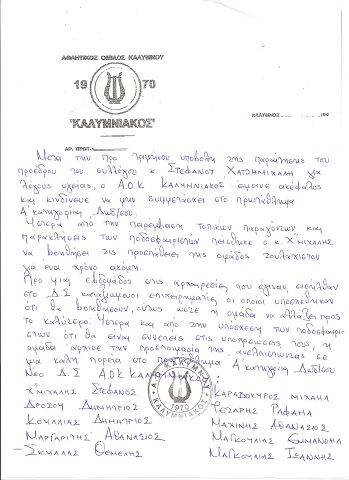 ΑΘΛΗΤΙΚΟΣ ΟΜΙΛΟΣ ΚΑΛΥΜΝΟΥ
19 70
"ΚΑΛΥΜΝΙΑΚΟΣ"
ΚΑΛΥΜΝΟΣ
ΑΡ. ΠΡΩΤ.
Μετά την προ τριμήνου υποβολή της παραίτησης του
προέδρου του συλλόγου κ. ΣΤΕΦΑΝΟΥ ΧΑΤΖΗΜΙΧΑΛΗ για
λόγους υγείας, ο Α.Ο.Κ ΚΑΛΥΜΝΙΑΚΟΣ έμεινε ακέφαλος
και κινδύνευε να μην συμμετάσχει στο πρωτάθλημα
Α κατηγορίας Δωδ/σου.
Ύστερα από την παρέμβαση τοπικών παραγόντων και
παρακλήσεις των ποδοσφαιριστών πείσθηκε ο κ. Χ"μιχάλης
να βοηθήσει τις προσπάθειες της ομάδος τουλάχιστον
για ένα χρόνο ακόμη.
Προ μιας εβδομάδος στις αρχαιρεσίες που έγιναν, εισήλθαν
στο Δ.Σ καταξιωμένοι επιχειρηματίες οι οποίοι υποσχέθηκαν
ότι θα βοηθήσουν, ούτως ώστε η ομάδα να αλλάξει προς
το καλύτερο. Ύστερα και από την υπόσχεση των ποδοσφαιρι-
στών ότι θα είναι συνεπείς στις υποχρεώσεις τους, η
ομάδα άρχισε την προετοιμασία της, ευελπιστώντας σε
μια καλή πορεία στο πρωτάθλημα Α' κατηγορίας Δωδ/σου
Νέο Δ.Σ ΑΟΚ ΚΑΛΥΜΝΙΑΚΟΣ
Α.Ο. ΚΑΛΥΜΝΟΥ 1970 ΚΑΛΥΜΝΙΑΚΟΣ
Χ"ΜΙΧΑΛΗΣ ΣΤΕΦΑΝΟΣ
ΚΑΡΑΒΟΚΥΡΟΣ ΜΙΧΑΗΛ
ΔΡΟΣΟΥ ΔΗΜΗΤΡΙΟΣ
ΤΕΖΑΡΗΣ ΡΑΦΑΗΛ
ΚΟΥΛΛΙΑΣ ΔΗΜΗΤΡΙΟΣ
ΜΑΧΙΝΗΣ ΑΘΑΝΑΣΙΟΣ
ΜΑΡΓΑΡΙΤΗΣ ΑΘΑΝΑΣΙΟΣ
ΜΑΓΚΟΥΛΙΑΣ ΕΜΜΑΝΟΥΗΛ
- ΣΚΥΛΛΑΣ ΘΕΜΕΛΗΣ
ΜΑΓΚΟΥΛΙΑΣ ΙΩΑΝΝΗΣ